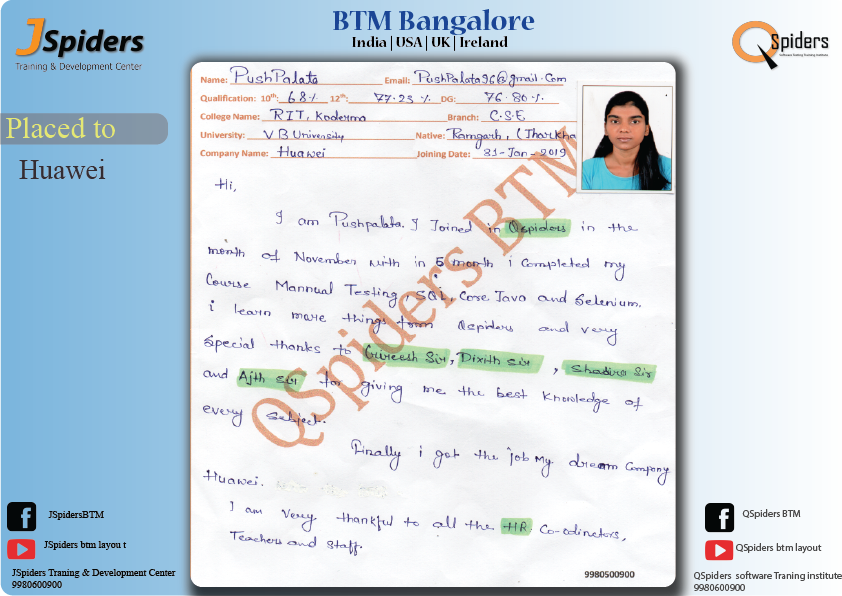 JSpiders
Training & Development Center
BTM Bangalore
India | USA | UK | Ireland
QSpiders
Software Testing Training Institute
Placed to
Huawei
Name: PushPalata Email: PushPalata96@gmail.com
Qualification: 10th: 68% 12th: 77.23 % DG: 76.80 %
College Name: RIT, Koderma Branch: C.S.E
University: V B University Native: Ramgarh, (Jharkha
Company Name: Huawei Joining Date: 31-Jan-2019
Hi,
I am Pushpalata. I Joined in Qspiders in the
month of November with in 5 month i Completed my
Course Mannual Testing, SQL, Core Java and Selenium.
i learn more things from Qspiders and very
Special thanks to Gureesh Sir, Dixith sir, Shadira Sir
and Ajth sir for giving me the best Knowledge of
every Subject.
Finally i got the job my dream Company
Huawei.
I am Very thankful to all the HR Co-odinetors,
Teachers and Staff.
QSpiders BTM
9980500900
JSpidersBTM
JSpiders btm layou t
JSpiders Traning & Development Center
9980600900
QSpiders BTM
QSpiders btm layout
QSpiders software Traning institute
9980600900